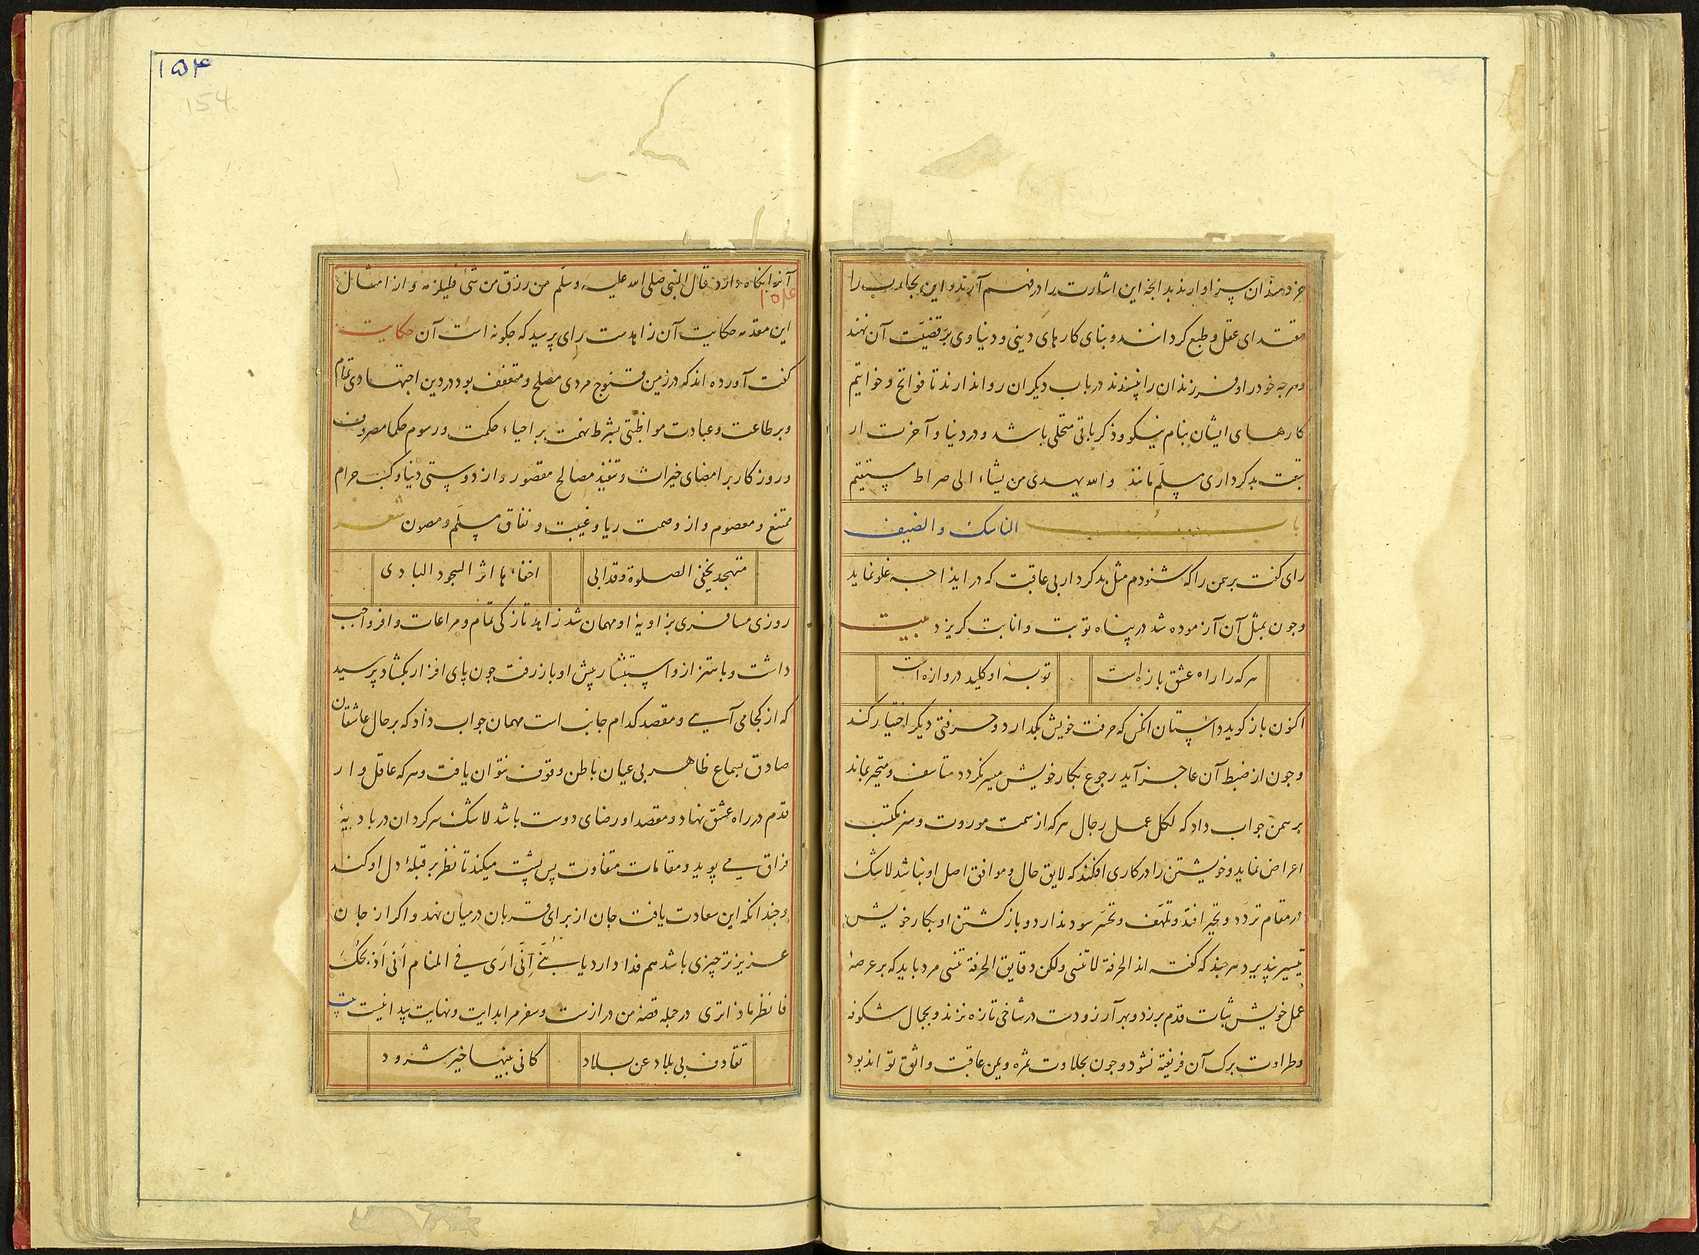 خردمندان سزاوارند بدانچه این اشارت را در فهم آرند و این تجارب را
مقتدای عقل و طبع گردانند و بنای کارهای دینی و دنیاوی بر قضیّت آن نهند
و هرچه خود را و فرزندان را نپسندند در باب دیگران روا ندارند تا فواتح و خواتیم
کارهای ایشان بنام نیکو و ذکر باقی متحلی باشد و در دنیا و آخرت از
تبعت بدکرداری مسلّم مانند والله یهدی من یشاء الی صراط مستقیم
باب الناسک والضیف
رای گفت برهمن را که شنودم مثل بدکردار بی عاقبت که در ایذا چه غلو نماید
و چون بمثل آن آزموده شد در پناه توبت و انابت گریزد بیت
هرکه را راه عشق باز است توبهٔ او کلید دروازه است
اکنون باز گوید داستان آنکس که حرفت خویش بگذارد و حرفتی دیگر اختیار کند
و چون از ضبط آن عاجز آید رجوع بکار خویش میسر نگردد متاسف و متحیر بماند
برهمن جواب داد که لکل عمل رجال هرکه از سمت موروث و هنر مکتسب
اعراض نماید و خویشتن را در کاری افکند که لایق حال و موافق اصل او نباشد لاشک
در مقام تردّد و تحیر افتد و تلهّف و تحسّر سود ندارد و بازگشتن او بکار خویش
تیسیر نپذیرد هرچند که گفته اند الحرفة لا تنسی ولکن دقایق الحرفة تنسی مرد باید که بر عرصهٔ
عمل خویش ثبات قدم برزد و بهر آرزو دست در شاخی تازه نزند و بجمال شکوفه
و طراوت برگ آن فریفته نشود و چون بحلاوت ثمره و یمن عاقبت واثق تواند بود
۱۵۴
154
آنرا نگاه دارد قال النبی صلی الله علیه وسلّم من رزق من شیٔ فلیلزمه و از امثال
این مقدمه حکایت آن زاهدست رای پرسید که چگونه است آن حکایت
گفت آورده اند که در زمین قنوج مردی مصلح و متعفف بود در دین اجتهادی تمام
و بر طاعت و عبادت مواظبتی بشرط نهمت بر احیاء حکمت و رسوم حکما مصروف
و روزگار بر امضای خیرات و تنفیذ مصالح مقصور و از دوستی دنیا و کسب حرام
ممتنع و معصوم و از وصمت ریا و غیبت و نفاق مسلّم و مصون شعر
متهجد یخفی الصلوة و قد ابی اخفاءها اثر السجود البادی
روزی مسافری بزاویهٔ او مهمان شد زاهد تازگی تمام و مراعات وافر واجب
داشت و باهتزاز و استبشار پیش او باز رفت چون پای افزار بگشاد پرسید
که از کجا می آیی و مقصد کدام جانب است مهمان جواب داد که بر حال عاشقان
صادق بسماع ظاهر بی عیان باطن وقوف نتوان یافت و هرکه عاقل وار
قدم در راه عشق نهاد و مقصد او رضای دوست باشد لاشک سرگردان در بادیهٔ
فراق می پوید و مقامات متفاوت پس پشت میکند تا نظر بر قبلهٔ دل او کند
و چندانکه این سعادت یافت جان از برای قربان در میان نهد و اگر از جان
عزیزتر چیزی باشد هم فدا دارد یا بُنَیَّ اِنّی اَری فی المنام اَنی اَذبحک
فانظر ماذا تری در جمله قصهٔ من درازست و سفر مرا بدایت و نهایت پیدا نیست بیت
تقاذف بی بلاد عن بلاد کانی بینها خیر شرود